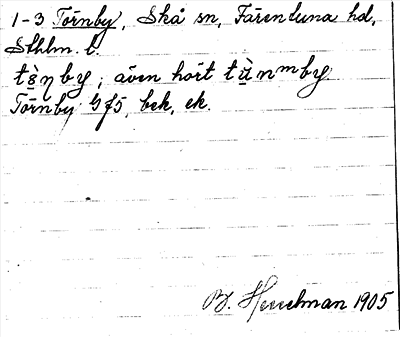 1-3 Törnby, Skå sn, Färentuna hd,
Sthlm. l.
tɜ̤ɳby; även hört tṳ̀nᵐby.
Törnby Gf5, bek, ek.
B. Hesselman 1905